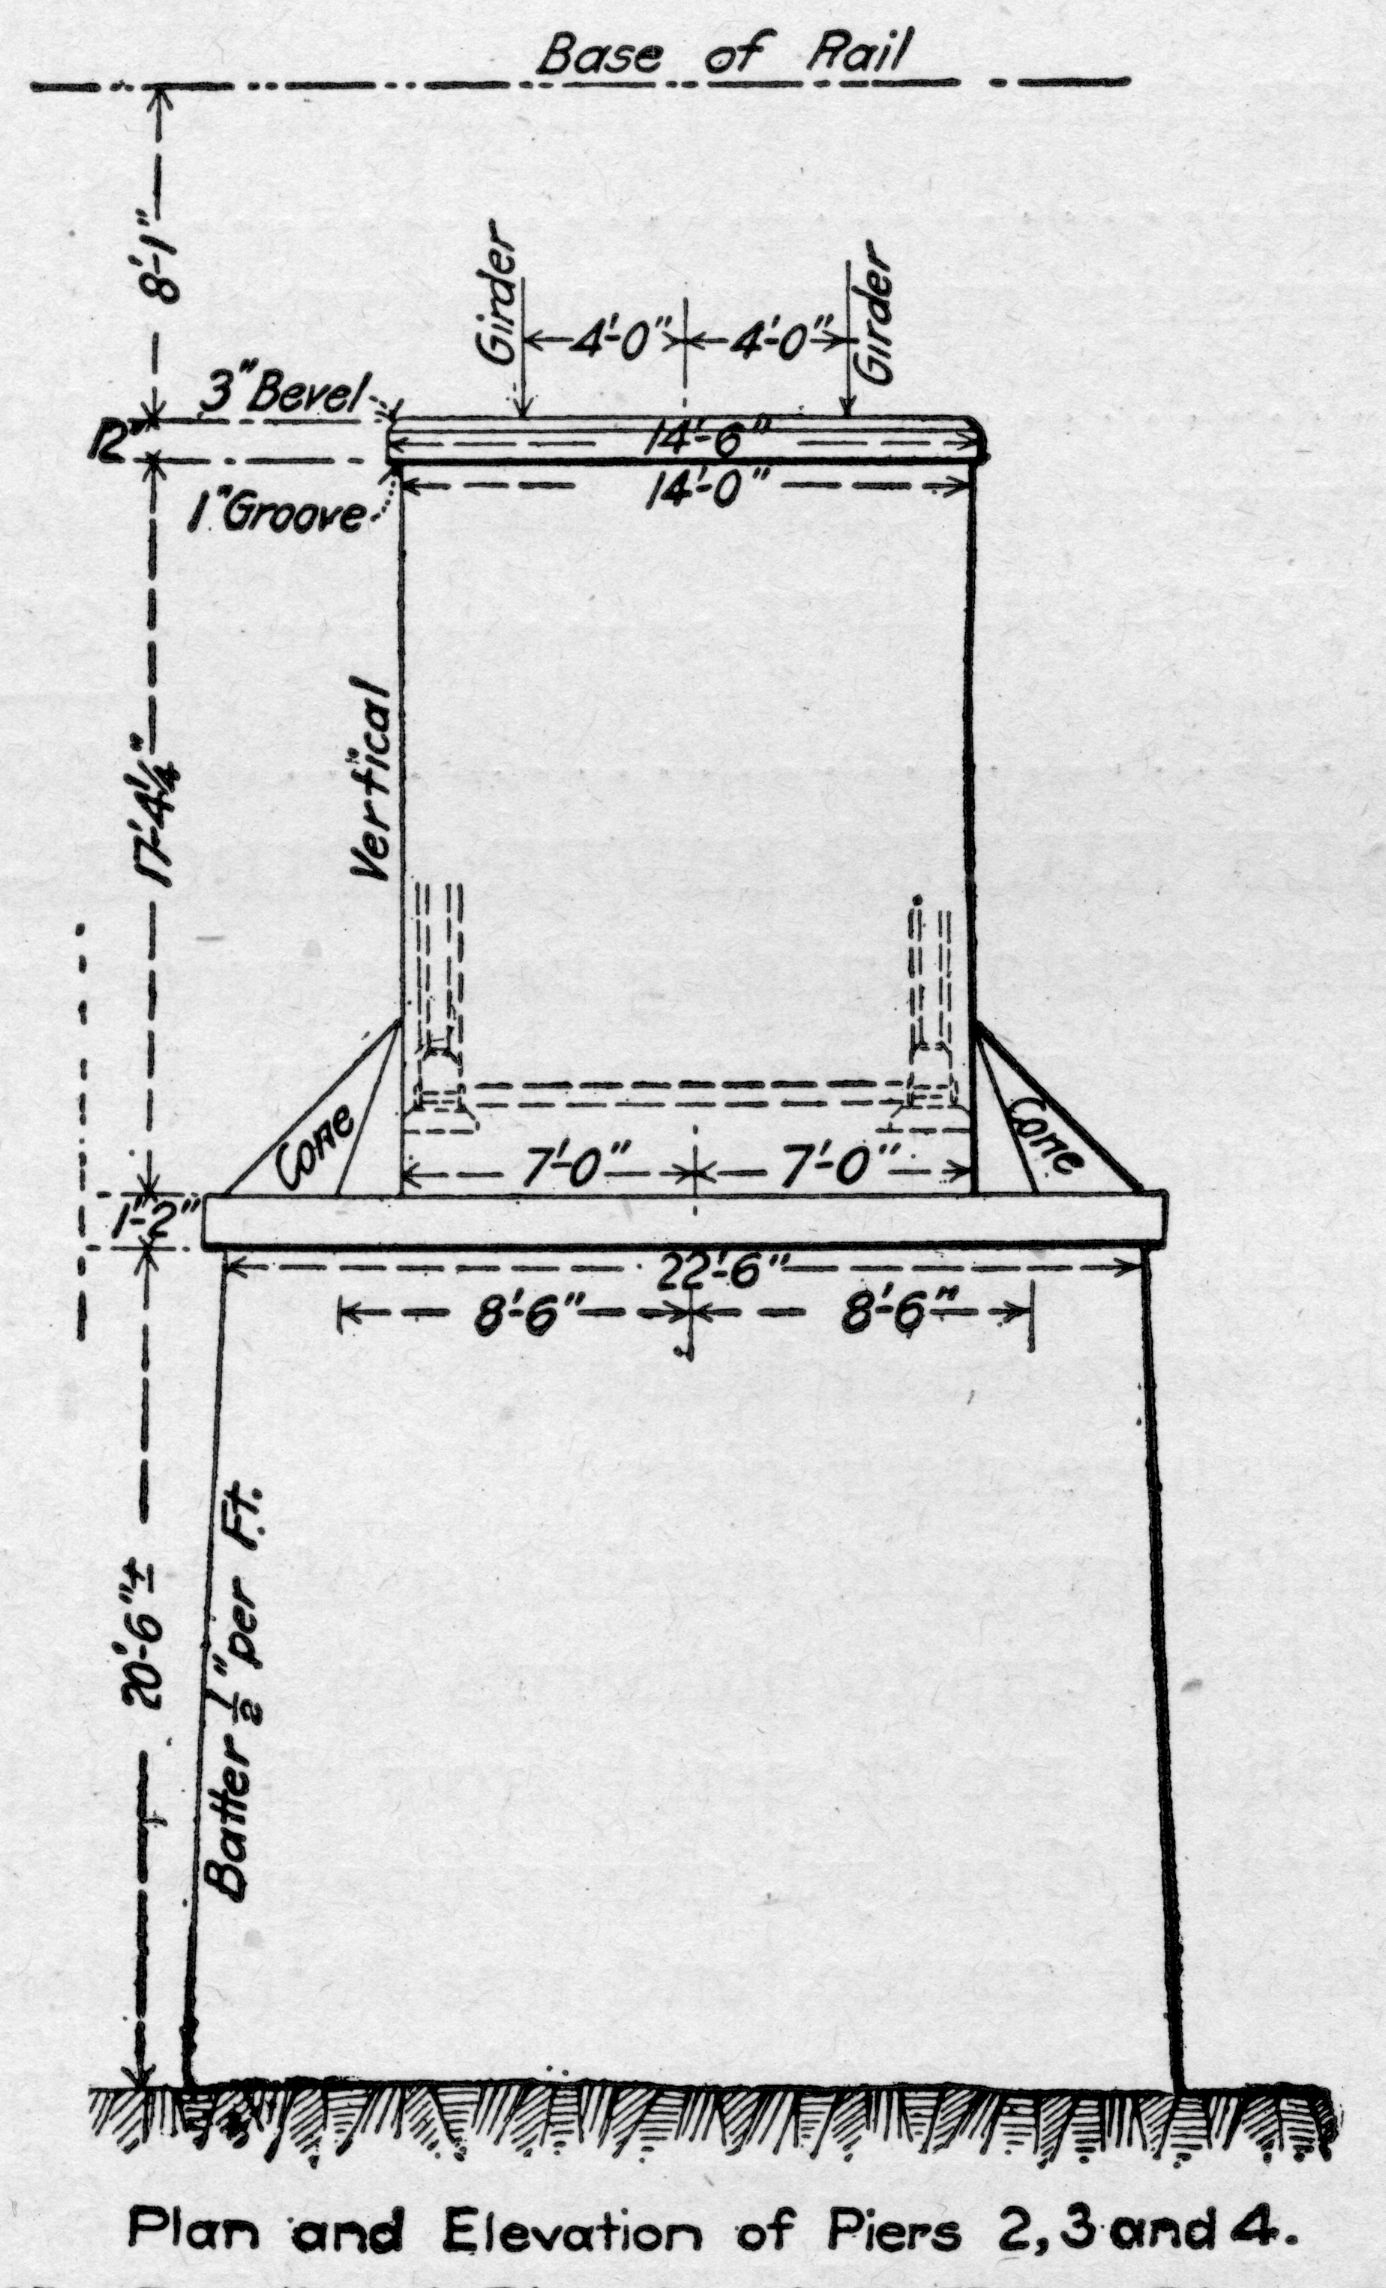 Base of Rail
8'-1"
Girder
Girder
4'-0"
4'-0"
3" Bevel
12"
14'-6"
14'-0"
1" Groove
Vertical
17'-4¼"
Cone
Cone
7'-0"
7'-0"
1'-2"
22'-6"
8'-6"
8'-6"
Batter ½" per Ft.
20'-6"±
Plan and Elevation of Piers 2, 3 and 4.